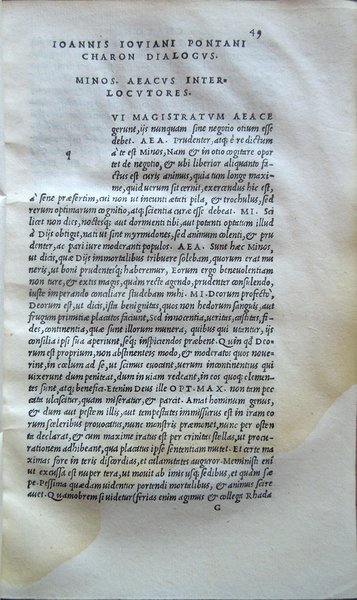 49
IOANNIS IOVIANI PONTANI
CHARON DIALOGVS.
MINOS. AEACVS INTER-
LOCVTORES.
q
VI MAGISTRATVM AEACE
gerunt, ijs nunquam sine negotio otium esse
debet. AEA. Prudenter, atq; è re dictum
à te est Minos, Nam & in otio cogitare opor
tet de negotio, & ubi liberior aliquanto fa
ctus est curis animus, quia tum longe maxi
me, quid uerum sit cernit, exercendus hic est,
à sene præsertim, cui non ut incunti ætati pila, & trochulus, sed
rerum optimarum cognitio, atq; scientia curæ esse debeat. MI. Sci
licet non dies, noctesq; aut dormienti tibi, aut potenti optatum illud
à Dijs obtigit, nati ut sint myrmidones, sed animum colenti, & pru
denter, ac pari iure moderanti populos. AEA. Sunt hæc Minos,
ut dicis, quæ Dijs immortalibus tribuere solebam, quorum erat mu
neris, ut boni prudentesq; haberemur, Eorum ergo beneuolentiam
non ture, & extis magis, quam recte agendo, prudenter consulendo,
iuste imperando conciliare studebam mihi. MI. Deorum profecto,
Deorum est, ut dicis, ista benignitas, quos non hœdorum sanguis, aut
frugum primitiæ placatos faciunt, Sed innocentia, ueritas, castitas, fi
des, continentia, quæ sunt illorum munera, quibus qui utuntur, ijs
consilia ipsi sua aperiunt, seq; inspiciendos præbent. Quin qd Deo
rum est proprium, non abstinentes modo, & moderatos quos noue
rint, in cœlum ad se, ut scimus euocant, uerum incontinentes qui
uixerunt dum peniteat, dum in uiam redeant, in eos quoq; clemen
tes sunt, atq; benefici. Etenim Deus ille OPT. MAX. non tam pec
cata ulciscitur, quam miseratur, & parcit. Amat hominum genus,
& dum aut pestem illis, aut tempestates immissurus est in iram eo
rum sceleribus prouocatus, nunc monstris præmonet, nunc per osten
ta declarat, & cum maxime iratus est per crinitas stellas, ut procu
rationem adhibeant, qua placatus ipse sententiam mutet. Et certe ma
ximas fore in terris discordias, et calamitates auguror. Meministi eni
ut excussa est nuper terra, ut mouit ab imis usq; sedibus, et quàm sæ
pe. Pessima quædam uidentur portendi mortalibus, & animus scire
auet. Quamobrem si uidetur (ferias enim agimus & collega Rhada
G